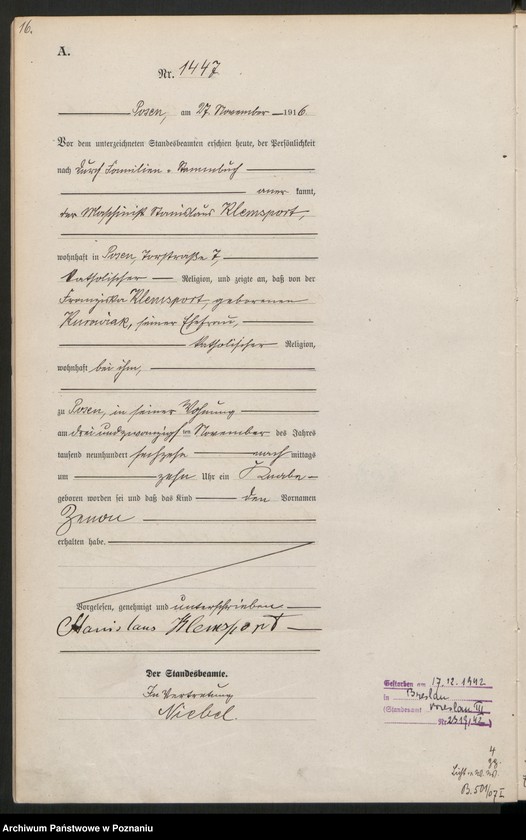 16.
A.
Nr. 1447
Posen, am 27. November 1916
Vor dem unterzeichneten Standesbeamten erschien heute, der Persönlichkeit
nach durch Familien-Stammbuch
aner kannt,
der Maschinist Stanislaus Klemsport,
wohnhaft in Posen, Torstraße 7,
katholischer Religion, und zeigte an, daß von der
Franziska Klemsport, geborenen
Kurowiak, seiner Ehefrau,
katholischer Religion,
wohnhaft bei ihm,
zu Posen, in seiner Wohnung
am dreiundzwanzigsten November des Jahres
tausend neunhundert sechzehn nach mittags
um zehn Uhr ein Knabe
geboren worden sei und daß das Kind den Vornamen
Zenon
erhalten habe.
Vorgelesen, genehmigt und unterschrieben
Stanislaus Klemsport
Der Standesbeamte.
In Vertretung
Niebel.
Gestorben am 17.12.1942
in Breslau
(Standesamt Breslau III
Nr. 2319/42)
4
B. 501/07 I
Archiwum Państwowe w Poznaniu